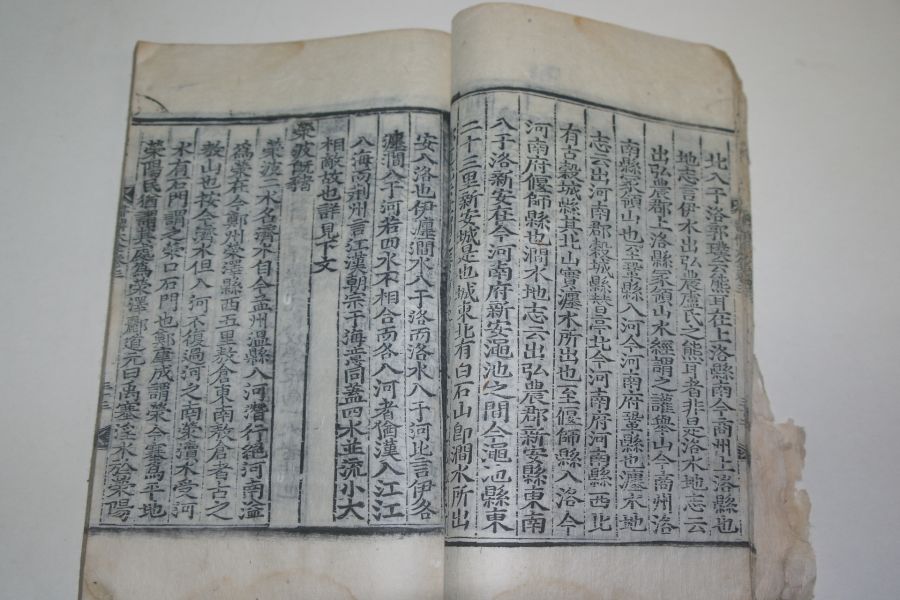 北入于洛郭璞云熊耳在上洛縣南今商州上洛縣也
地志言伊水出弘農盧氏之熊耳者非是洛水地志云
出弘農郡上洛縣冢領山水經謂之讙舉山今商州洛
南縣冢領山也至鞏縣入河今河南府鞏縣也瀍水地
志云出河南郡穀城縣朁亭北今河南府河南縣西北
有古穀城縣其北山實瀍水所出也至偃師縣入洛今
河南府偃師縣也澗水地志云出弘農郡新安縣東南
入于洛新安在今河南府新安澠池之間今澠池縣東
二十三里新安城是也城東北有白石山卽澗水所出
安入洛也伊瀍澗水入于洛而洛水入于河此言伊洛
瀍澗入于河若四水不相合而各入河者猶漢入江江
入海而荆州言江漢朝宗于海意同蓋四水並流小大
相敵故也詳見下文
滎波旣豬
滎波二水名濟水自今孟州溫縣入河潛行絶河南溢
爲滎在今鄭州滎澤縣西五里敖倉東南敖倉者古之
敖山也按今濟水但入河不復過河之南滎瀆水受河
水有石門謂之滎口石門也鄭康成謂滎今塞爲平地
滎陽民猶謂其處爲滎澤酈道元曰禹塞淫水於滎陽